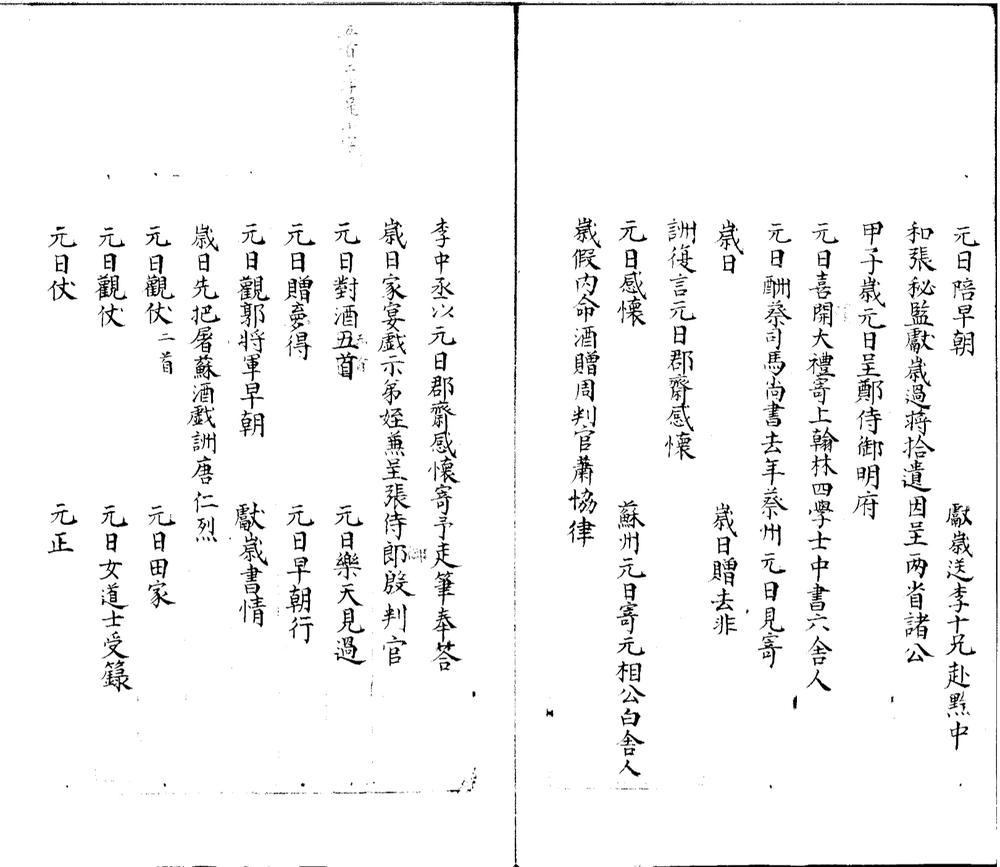 元日陪早朝　獻歲送李十兄赴黔中
和張秘監獻歲過蔣拾遺因呈兩省諸公
甲子歲元日呈鄭侍御明府
元日喜聞大禮寄上翰林四學士中書六舍人
元日酬蔡州司馬尚書去年蔡州元日見寄
歲日　歲日贈去非
詶復言元日郡齋感懷
元日感懷　蘇州元日寄元相公白舍人
歲假內命酒贈周判官蕭協律
李中丞以元日郡齋感懷寄予走筆奉答
歲日家宴戲示弟姪兼呈張侍郎殷判官
元日對酒五首　元日樂天見過
元日贈夢得　元日早朝行
元日觀郭將軍早朝　獻歲書情
歲日先把屠蘇酒戲詶唐仁烈
元日觀仗二首　元日田家
元日觀仗　元日女道士受籙
元日仗　元正